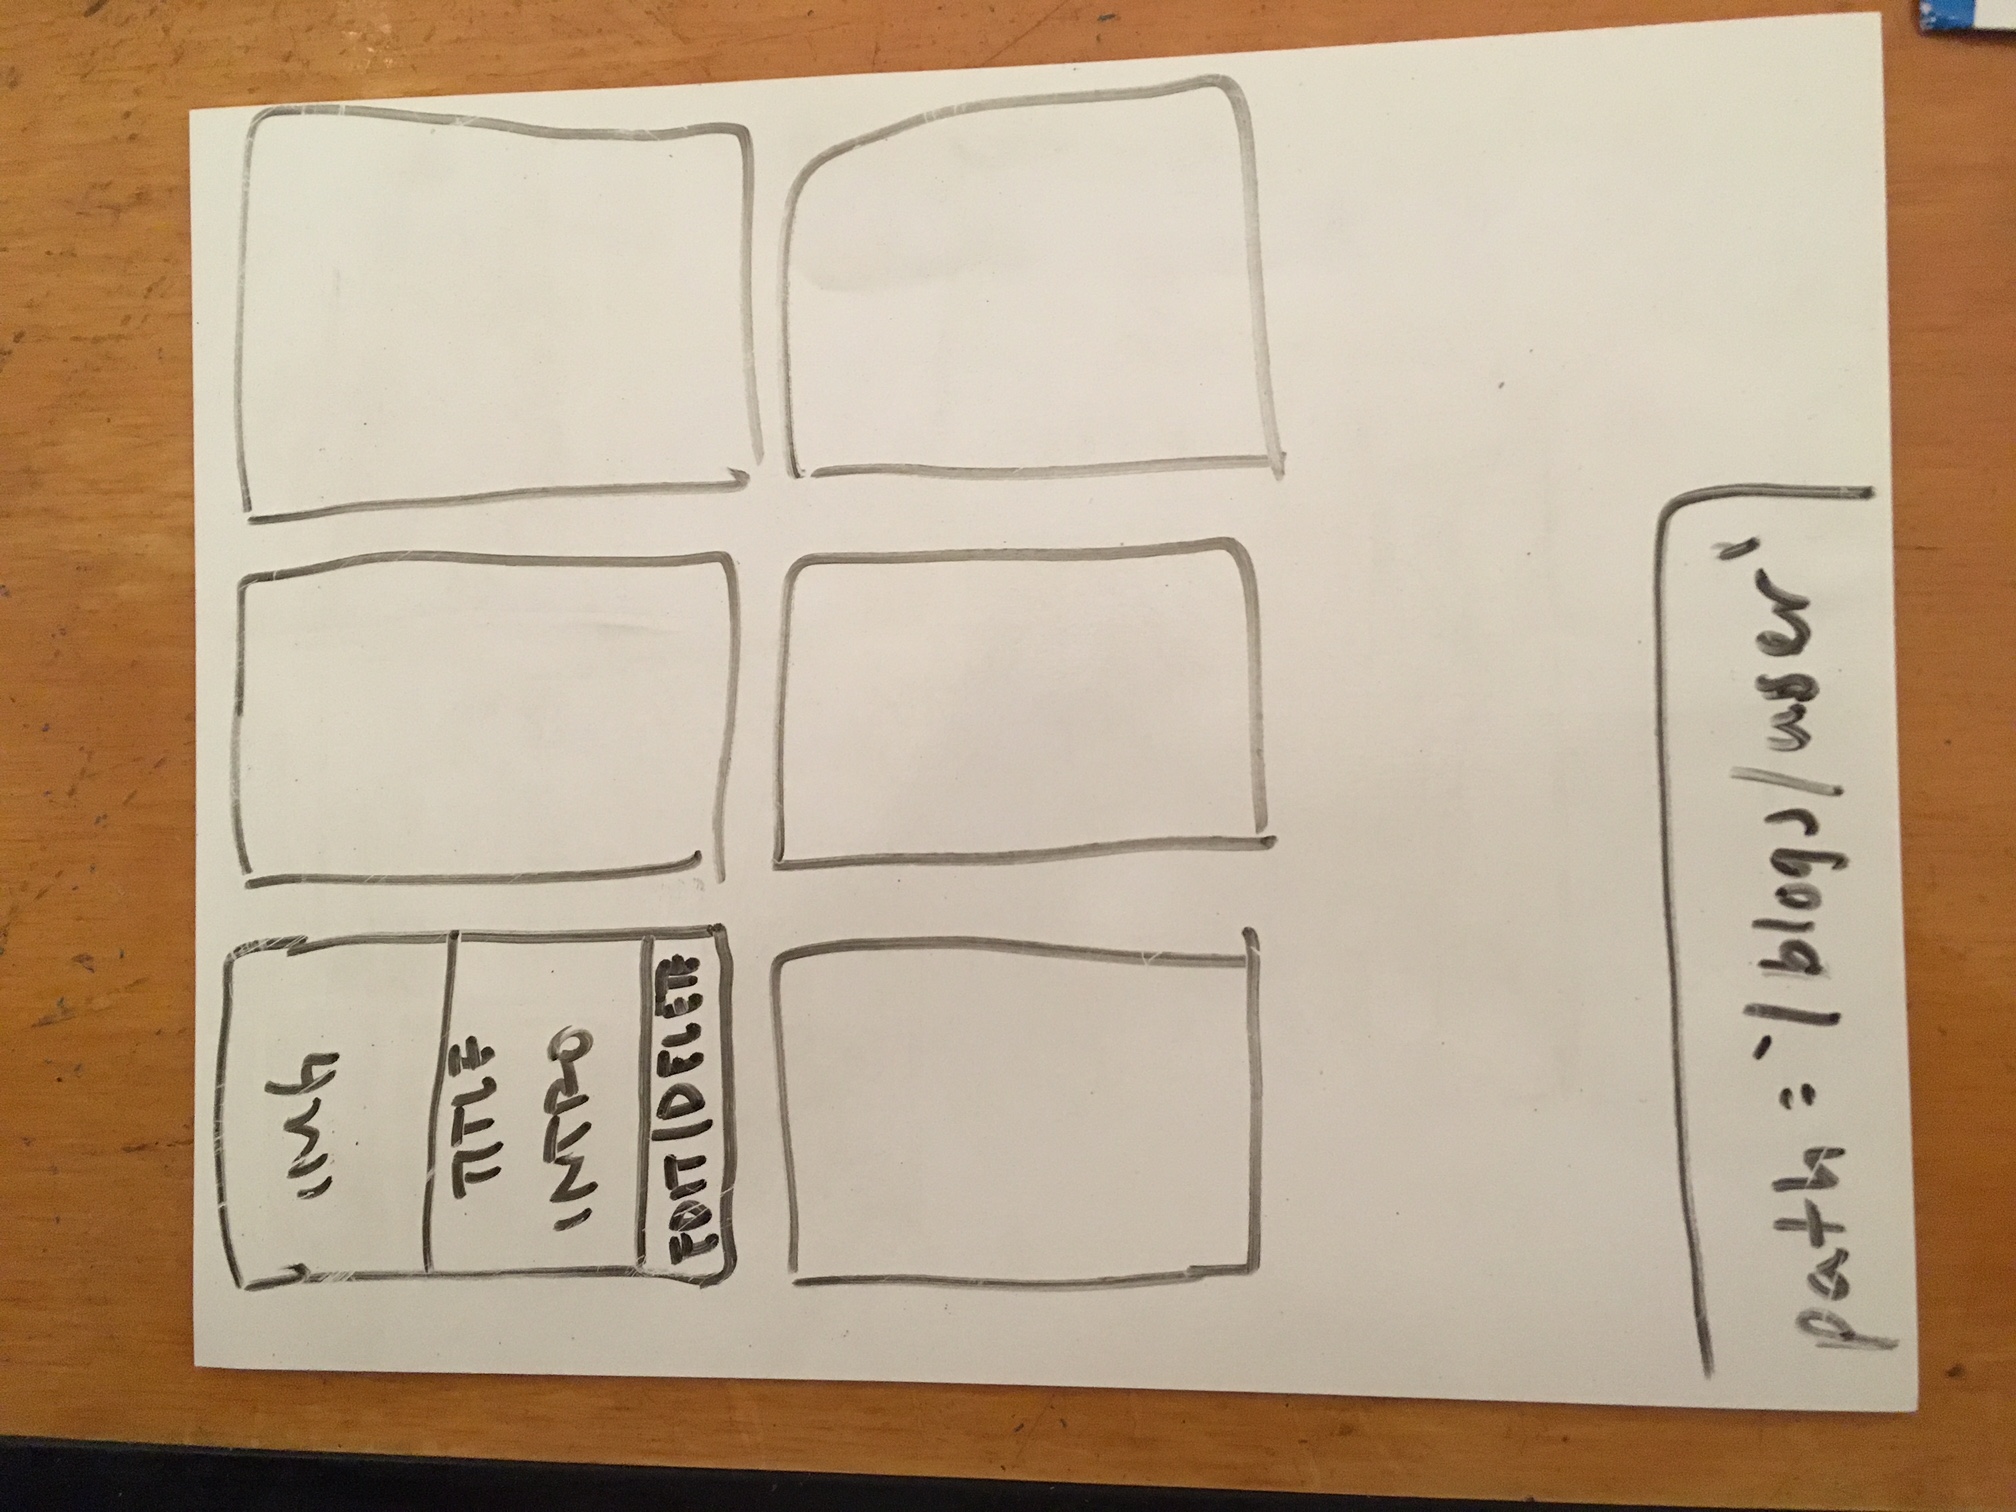 IMG
TITLE
INTRO
EDIT/DELETE
path = '/blogs/user'